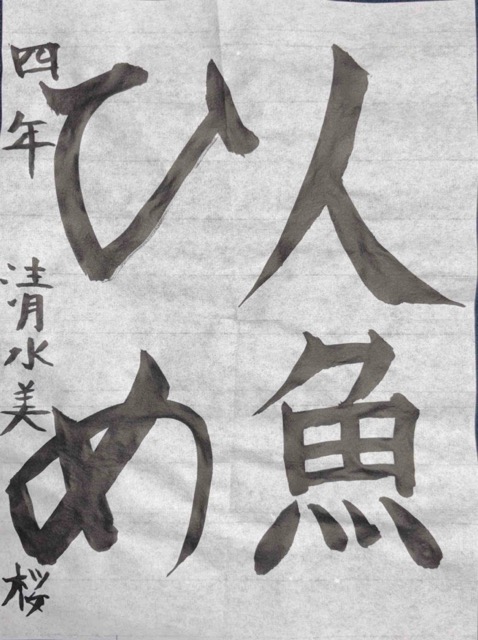 人魚
ひめ
四年 清水美桜